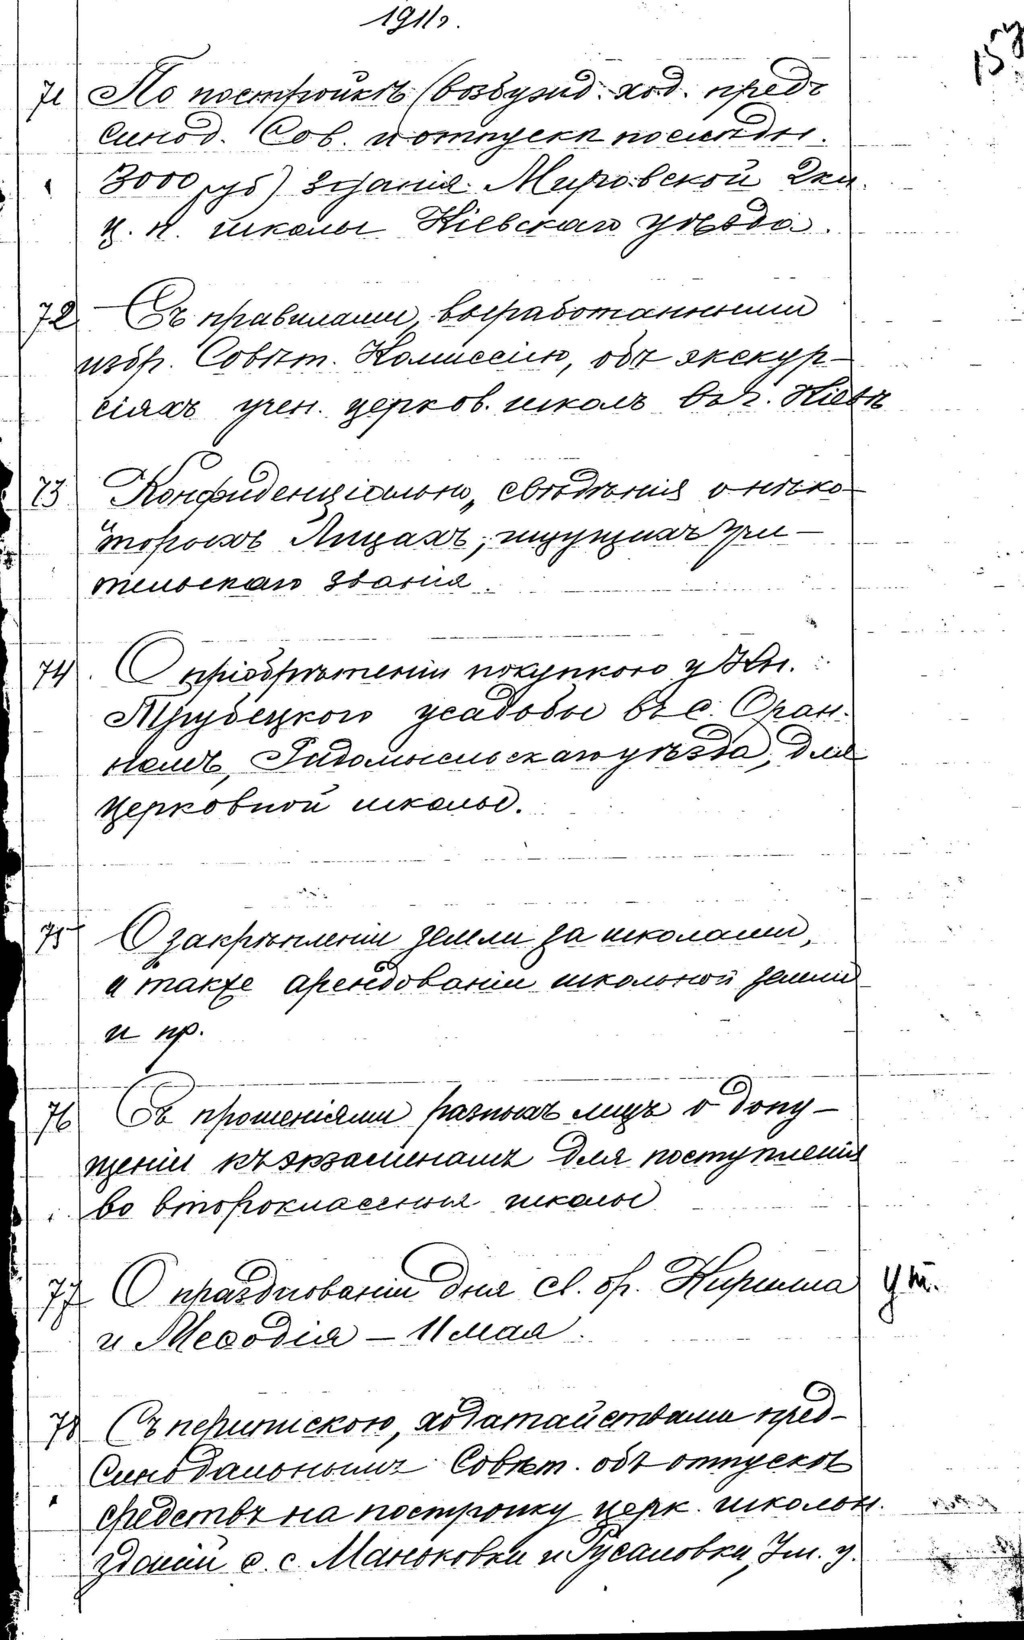 1911г.
157
71 По постройкѣ (возбужд. ход. предъ
Синод. Сов. и отпуски последн.
3000 руб) зданія Мировской 2кл.
ц. п. школы Кіевскаго уѣзда.
72 Съ правилами, выработанными
избр. Совѣт. Комиссіею, объ экскур-
сіяхъ учен. церков. школъ въ г. Кіевѣ
73 Конфиденціально, свѣдѣнія о нѣко-
торыхъ лицахъ, ищущихъ учи-
тельскаго званія.
74. О пріобрѣтеніи покупкою у Кн.
Трубецкого усадьбы въ с. Оран-
номъ, Радомысльскаго уѣзда, для
церковной школы.
75 О закрѣпленіи земли за школами,
а также арендованіи школьной земли
и пр.
76 Съ прошеніями разныхъ лицъ о допу-
щеніи къ экзаменамъ для поступленія
во второклассныя школы
77 О празднованіи дня св. бр. Кирилла
и Меѳодія – 11 мая.
ут.
78 Съ перепискою, ходатайствами пред-
Синодальнымъ Совѣт. объ отпускѣ
средствъ на постройку церк. школьн.
зданій с. с. Маньковки и Русаловки, Ум. у.